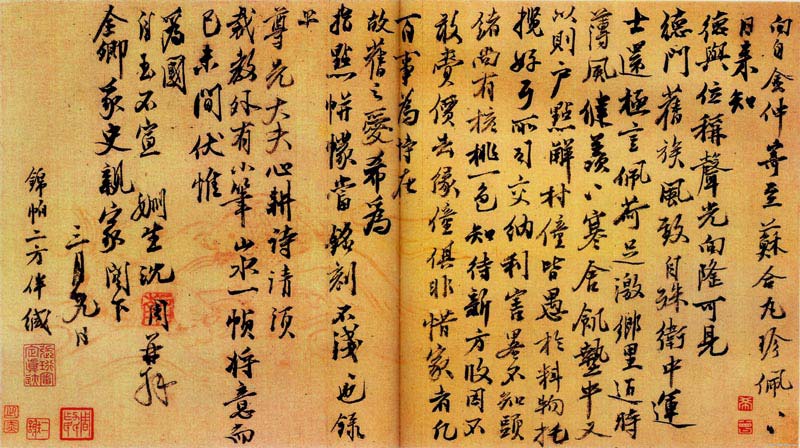 向自金仲等至蘇合丸珍佩〻
日来知
德與位稱聲光向隆可見
德門舊族風致自殊衛中運
士還極言佩荷足激鄉里近時
薄風健羨〻寒舍飢墊中又
以則户點解村僮皆愚於料物托
攬好亏所司交納利害畧不知頭
緒尚有核桃一色知待新方收因不
敢費價去緣僮俱非惜家者凡
百事為
故舊之愛希為
指點帡幪當銘刻不淺也錄
上
尊先大夫心耕詩請須
裁教外有小筆山水一幀将意而
已未間伏惟
為國
自玉不宣 姻生沈周再拜
金卿家史親家閣下
三月九日
錦帕二方伴緘